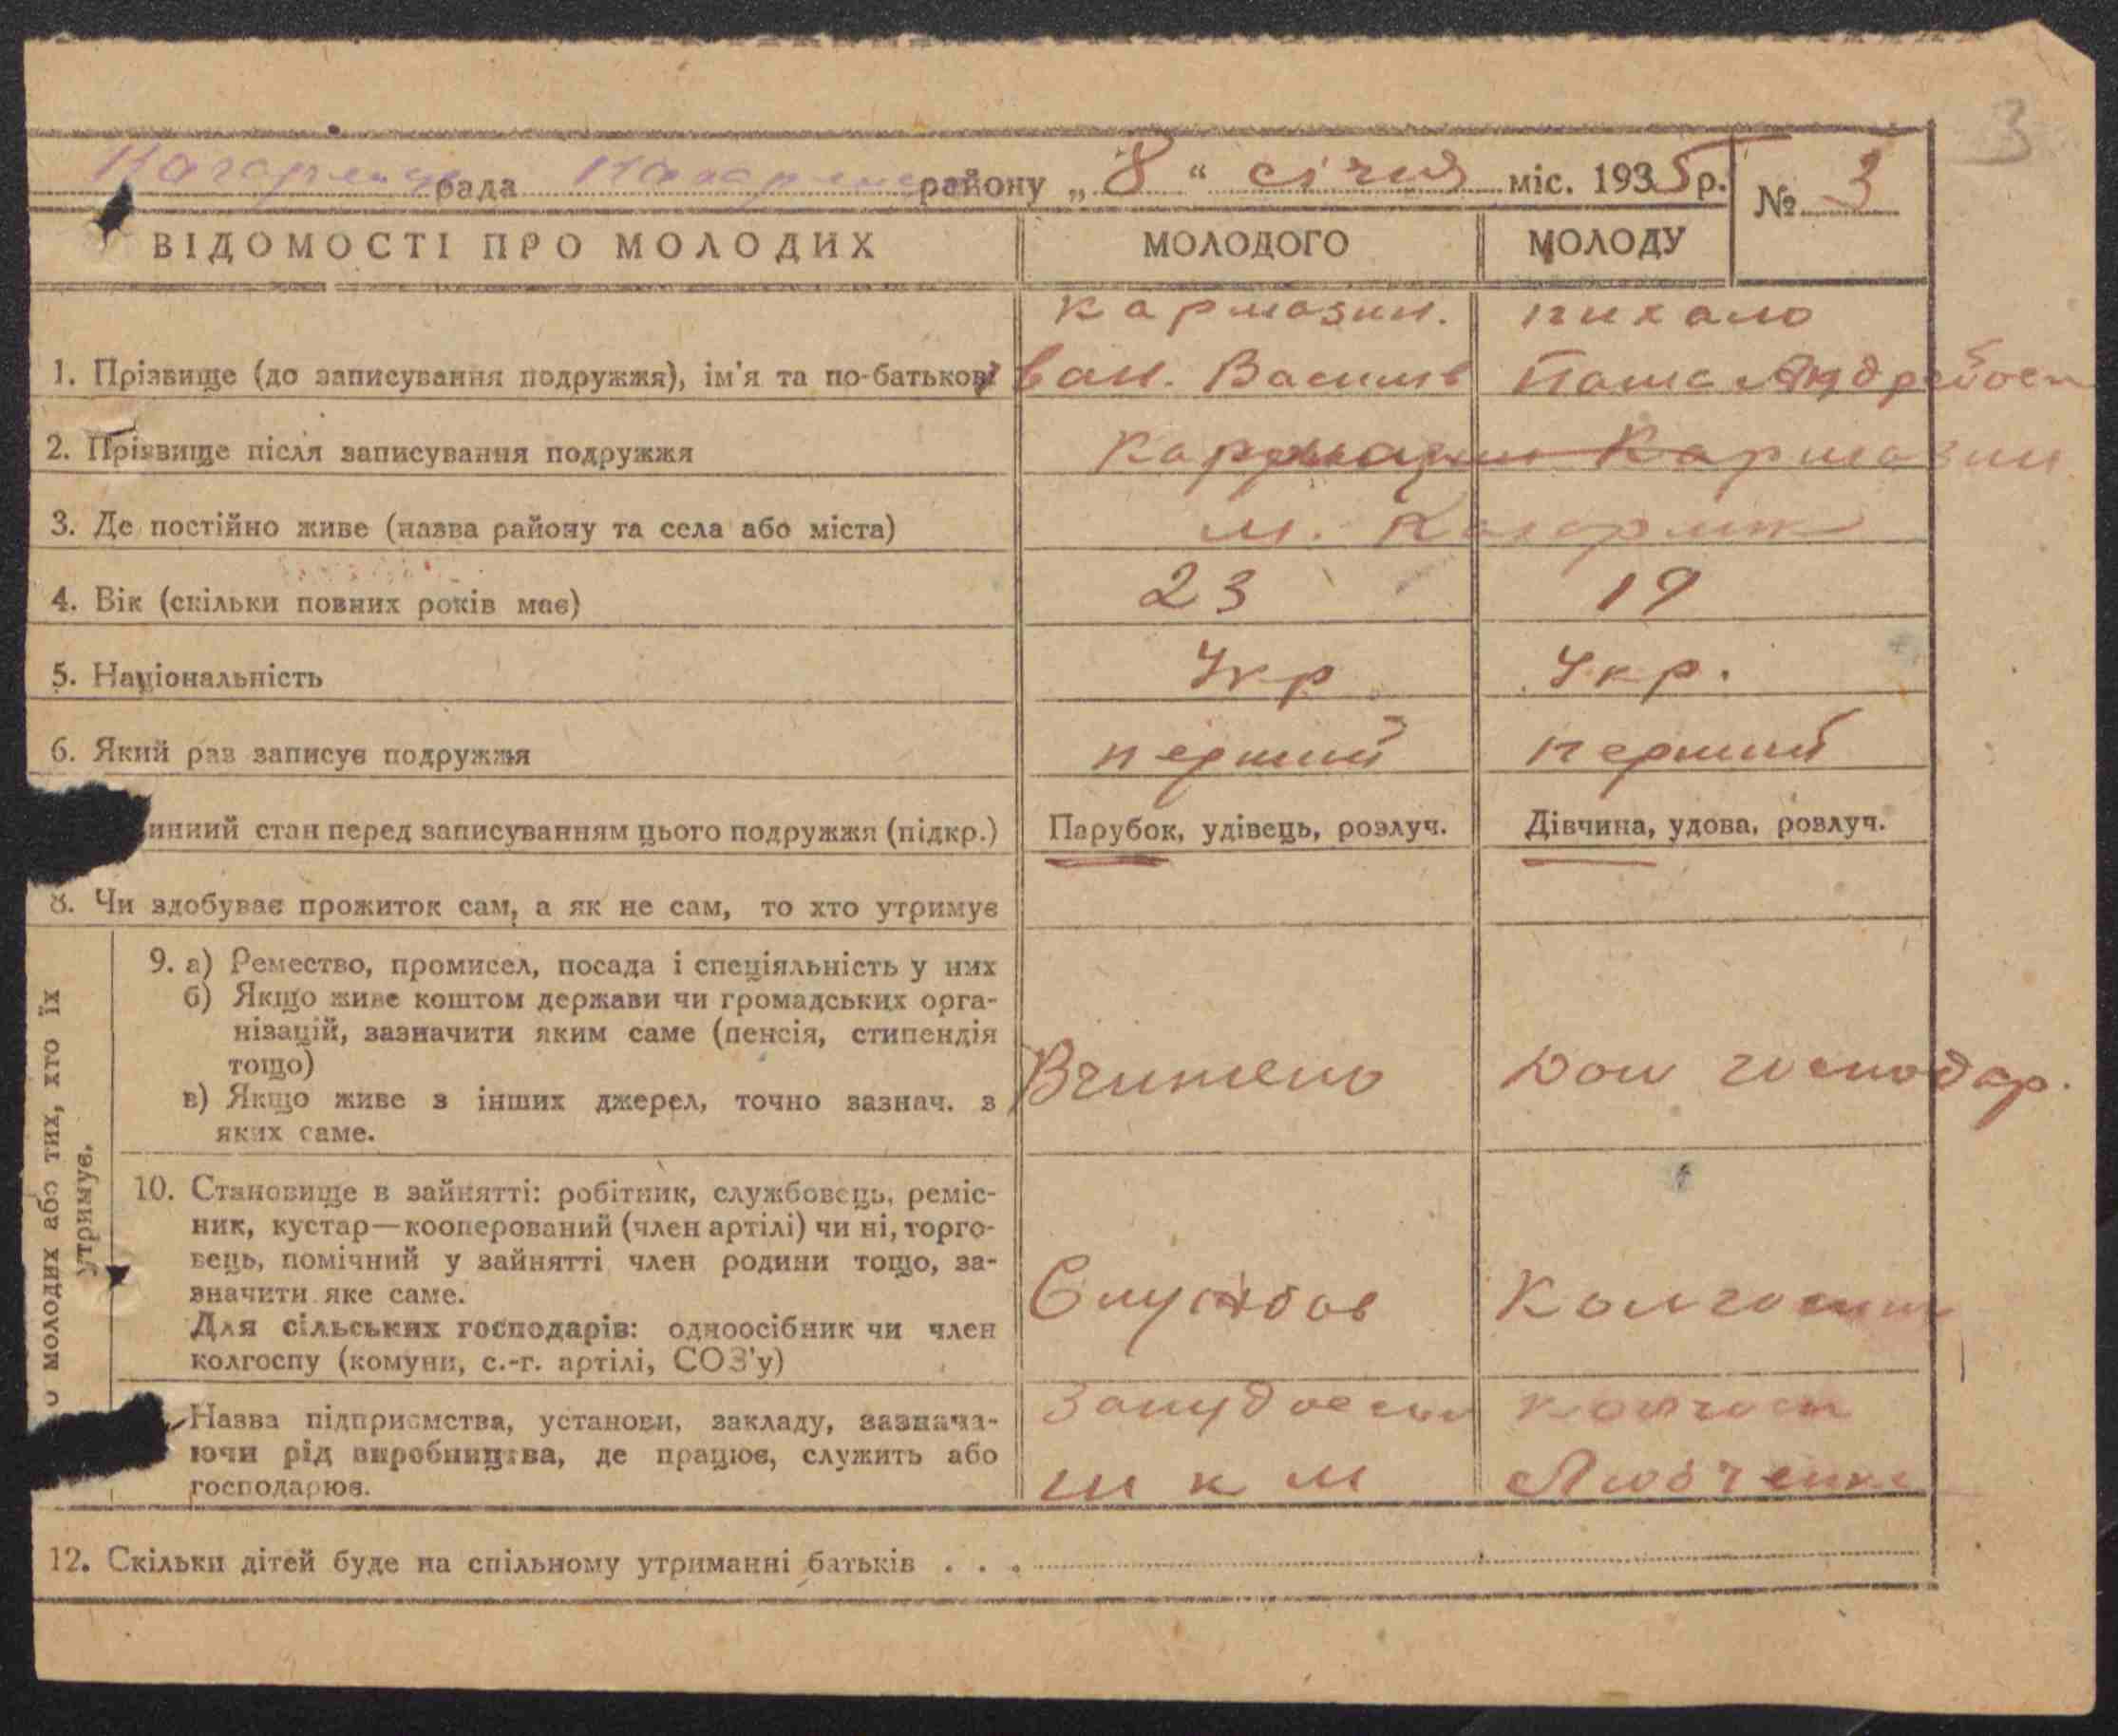 3
рада району „ 8 “ січня міс. 1935 р. № 3
ВІДОМОСТІ ПРО МОЛОДИХ МОЛОДОГО МОЛОДУ
Кармазин. пихало
1. Прізвище (до записування подружжя), ім'я та по-батькові Іван. Васильв Паша Андреївен
2. Прізвище після записування подружжя Кармазин Кармазин
3. Де постійно живе (назва району та села або міста) м. Кагарлик
4. Вік (скільки повних років має) 23 19
5. Національність Укр Укр.
6. Який раз записує подружжя перший перший
инний стан перед записуванням цього подружжя (підкр.) Парубок, удівець, розлуч. Дівчина, удова, розлуч.
8. Чи здобуває прожиток сам, а як не сам, то хто утримує
о молодих або тих, хто їх
утримує.
9. а) Ремество, промисел, посада і спеціяльність у них
б) Якщо живе коштом держави чи громадських орга-
нізацій, зазначити яким саме (пенсія, стипендія
тощо)
в) Якщо живе з інших джерел, точно зазнач. з
яких саме.
Вчитель Дом господар.
10. Становище в зайнятті: робітник, службовець, реміс-
ник, кустар—кооперований (член артілі) чи ні, торго-
вець, помічний у зайнятті член родини тощо, за-
значити яке саме.
Для сільських господарів: одноосібник чи член
колгоспу (комуни, с.-г. артілі, СОЗ'у)
Службов Колгоспн
Назва підприємства, установи, закладу, зазнача-
ючи рід виробництва, де працює, служить або
господарює.
колгосп
шкм Любченка
12. Скільки дітей буде на спільному утриманні батьків . . .